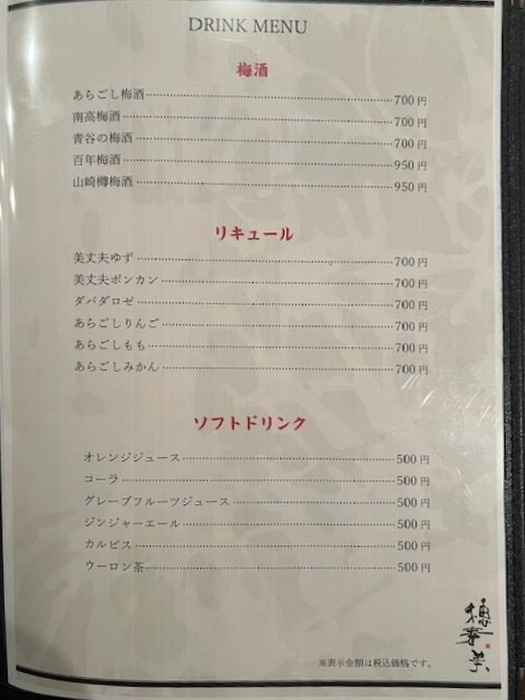 DRINK MENU
梅酒
あらごし梅酒 700円
南高梅酒 700円
青谷の梅酒 700円
百年梅酒 950円
山崎樽梅酒 950円
リキュール
美丈夫ゆず 700円
美丈夫ポンカン 700円
ダバダロゼ 700円
あらごしりんご 700円
あらごしもも 700円
あらごしみかん 700円
ソフトドリンク
オレンジジュース 500円
コーラ 500円
グレープフルーツジュース 500円
ジンジャーエール 500円
カルピス 500円
ウーロン茶 500円
※表示金額は税込価格です。